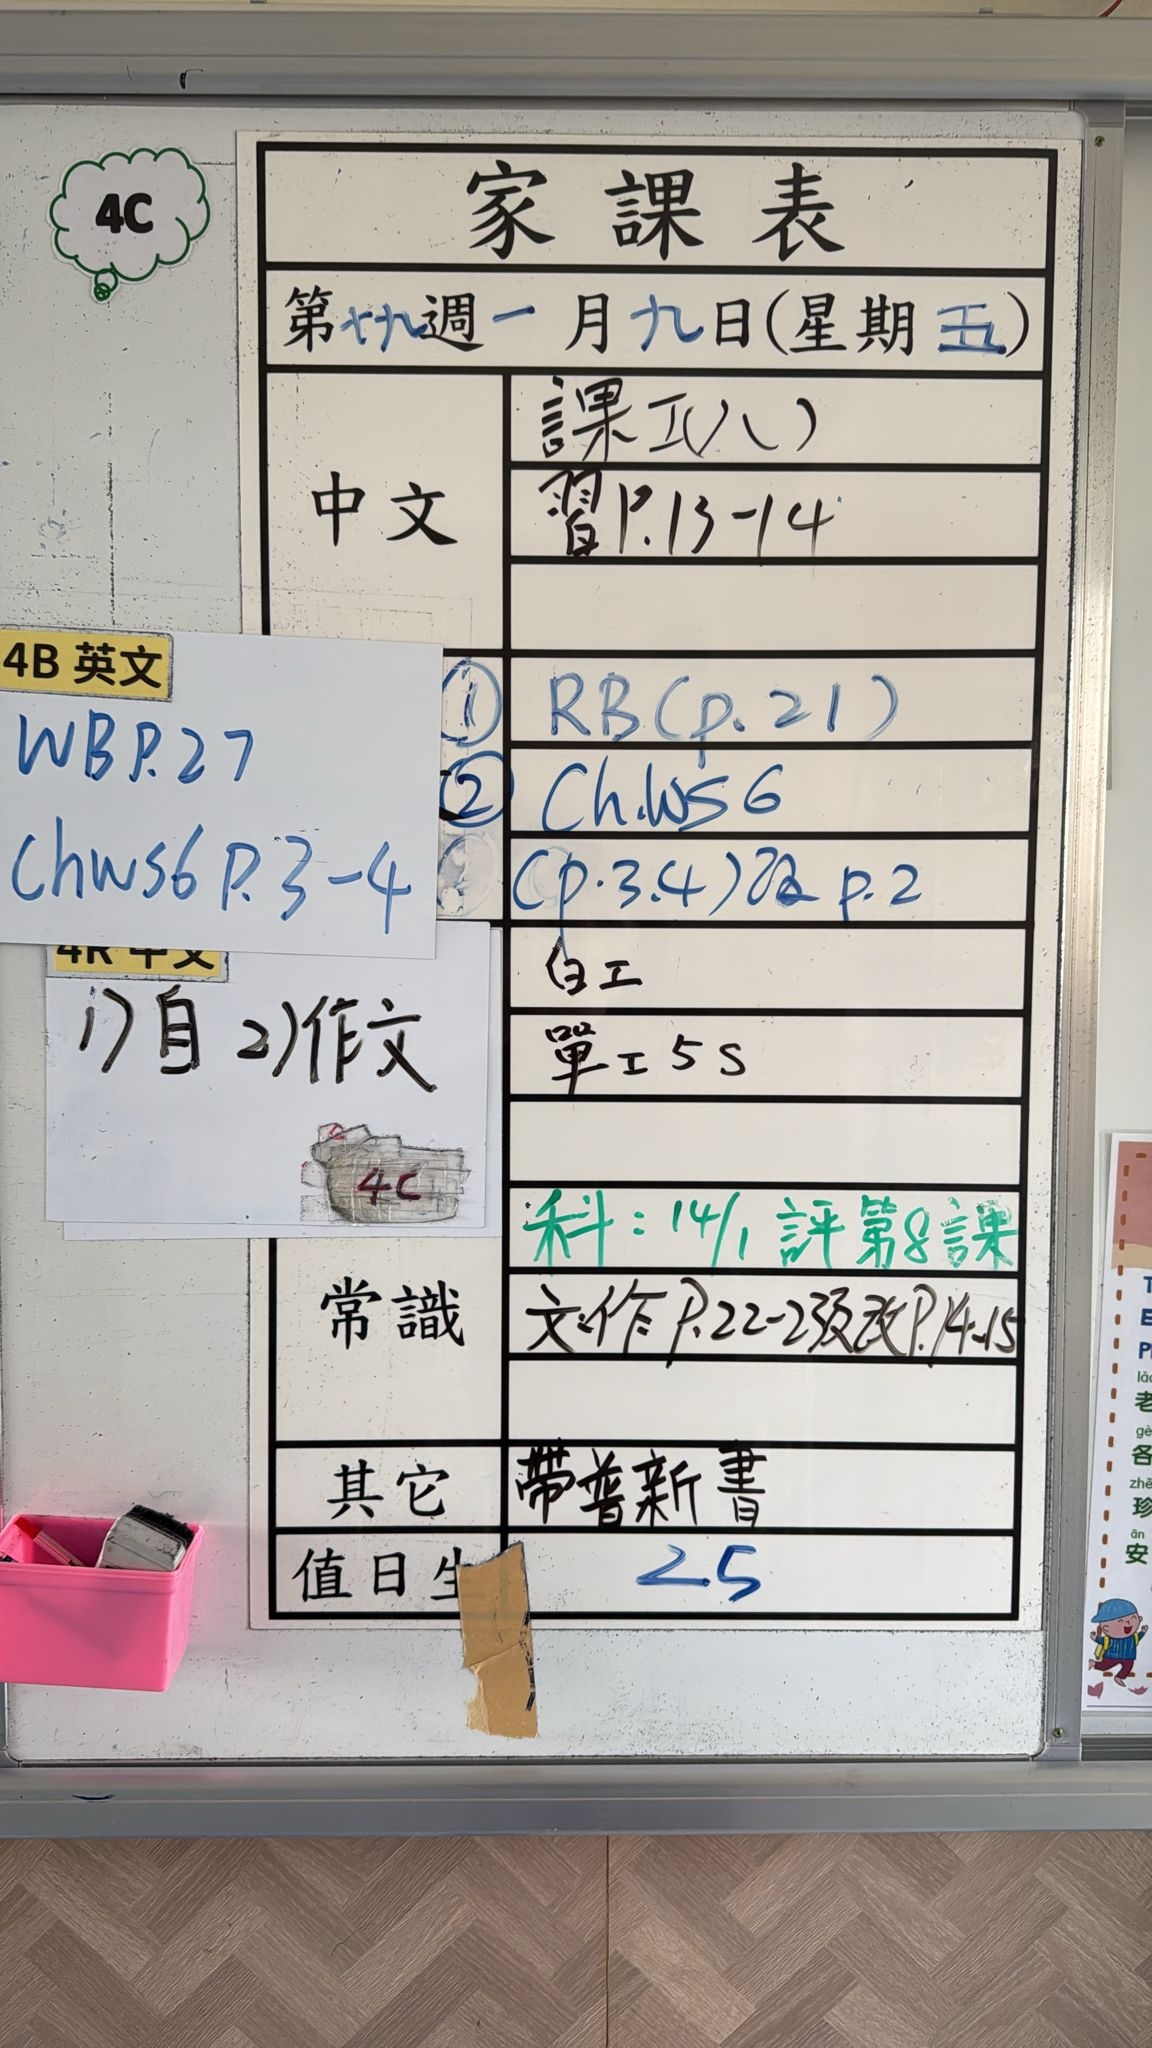 4C
家課表
第十九週一月九日(星期五)
中文
課工(八)
習P.13-14
4B 英文
WB P.27
Chws6 P.3-4
① RB(p.21)
② Ch.WS 6
(p.3.4)改 p.2
4R 中文
1)自 2)作文
4C
白工
單工5S
常識
科:14/1 評第8課
文:作P.22-23及改P.14-15
其它
帶普新書
值日生
25
老
各
珍
安